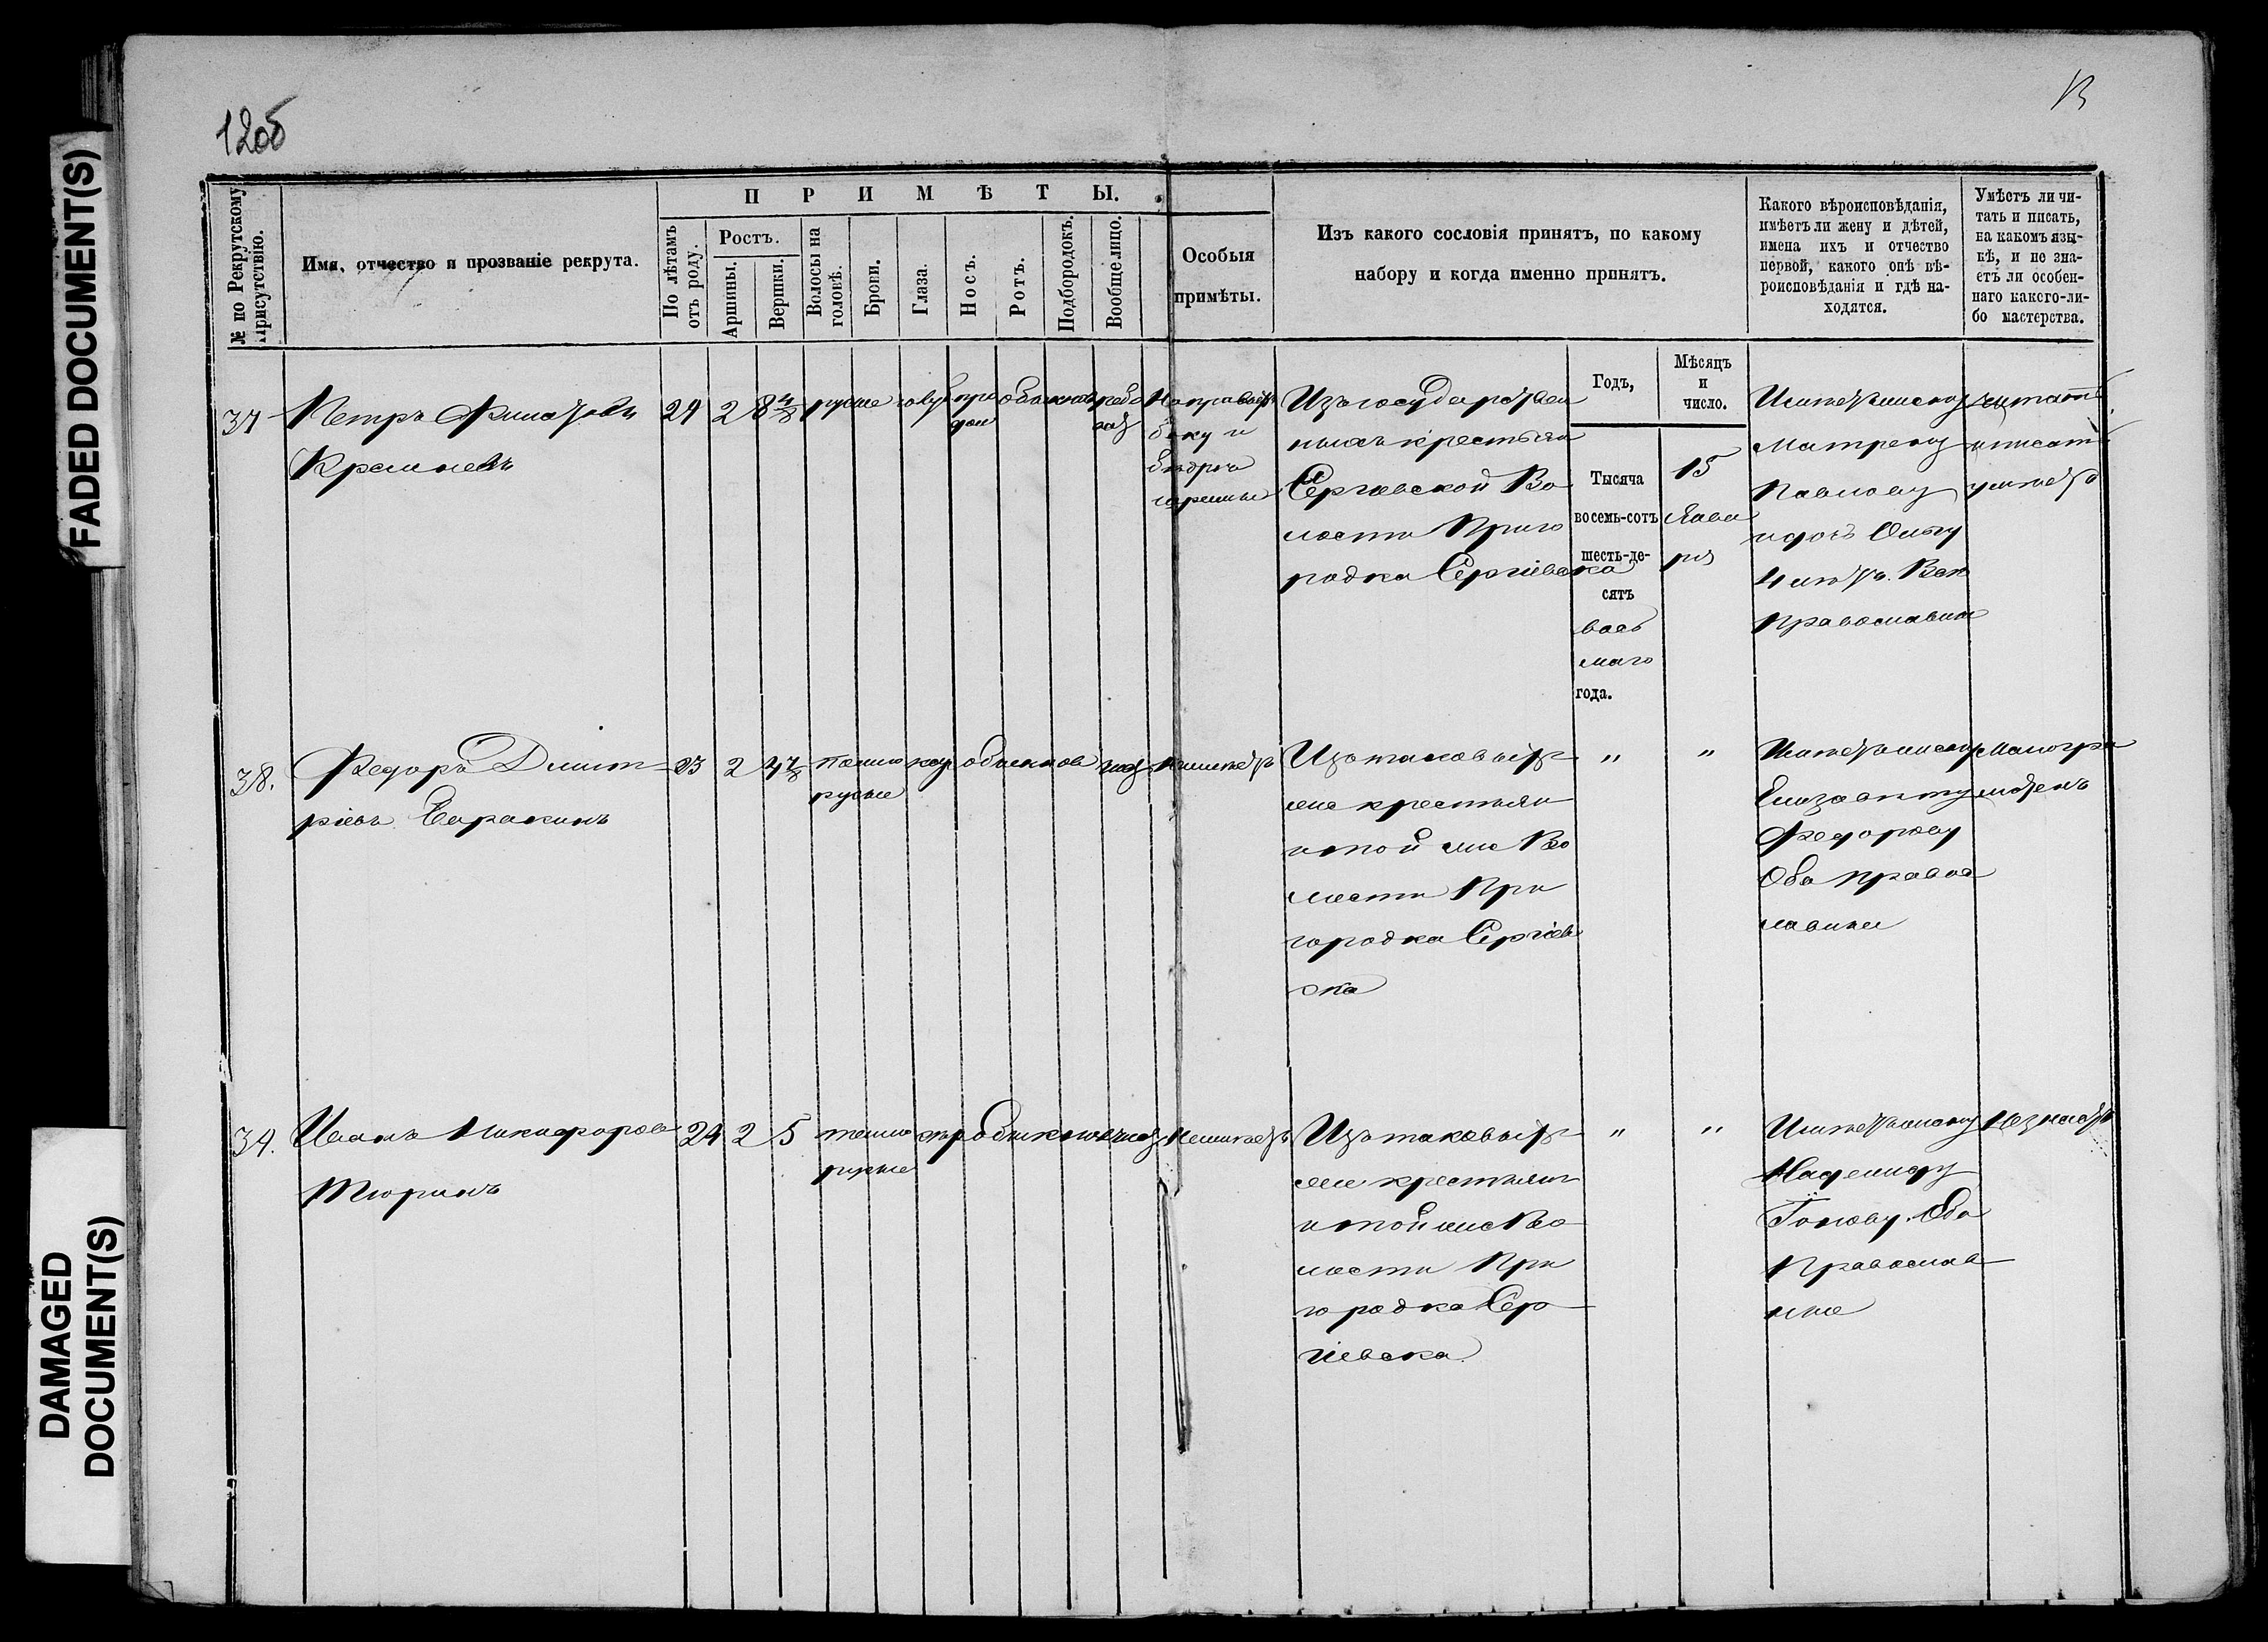 FADED DOCUMENT(S)
DAMAGED
DOCUMENT(S)
12об
13
№ по Рекрутскому
Присутствію.
Имя, отчество и прозваніе рекрута.
ПРИМѢТЫ.
По лѣтамъ
отъ роду.
Ростъ.
Аршины.
Вершки.
Волосы на
головѣ.
Брови.
Глаза.
Носъ.
Ротъ.
Подбородокъ.
Вообще лицо.
Особыя
примѣты.
Изъ какого сословія принятъ, по какому
набору и когда именно принятъ.
Какого вѣроисповѣданія,
имѣетъ ли жену и дѣтей,
имена ихъ и отчество
первой, какого онѣ вѣ-
роисповѣданія и гдѣ на-
ходятся.
Умѣетъ ли чи-
тать и писать,
на какомъ язы-
кѣ, и не зна-
етъ ли особен-
наго какого-ли-
бо мастерства.
Годъ,
Мѣсяцъ
и
число.
37
Петръ
Кремневъ
24
2
русые
На правомъ
боку и
бедрѣ
Изъ государствен
ныхъ крестьянъ
Сергіевской Во
лости Приго
родка Сергіевска
Тысяча
восемь-сотъ
шесть-де-
сятъ
вось
маго
года.
15
Янва
ря
Имѣетъ жену
Матрену
Павлову
и дочь Ольгу
4 лѣтъ. Всѣ
православные
читать
и писать
умѣетъ
38.
Федоръ Димит
ріевъ Саракинъ
23
2
темно
русые
кар
обыкнов
чис
Неимѣетъ
Изъ таковыхъ
же крестьянъ
и той же Во
лости При
городка Сергіев
ска
"
"
Имѣетъ жену
Елизавету
Федорову
Оба правос
лавные
Малогра
мотенъ
39.
Иванъ Никифоровъ
Тюринъ
24
2
5
темно
русые
сѣр
обыкнов
чис
Неимѣетъ
Изъ таковыхъ
же крестьянъ
и той же Во
лости При
городка Сер
гіевска.
"
"
Имѣетъ жену
Надежду
Оба
Православ
ные
Незнаетъ